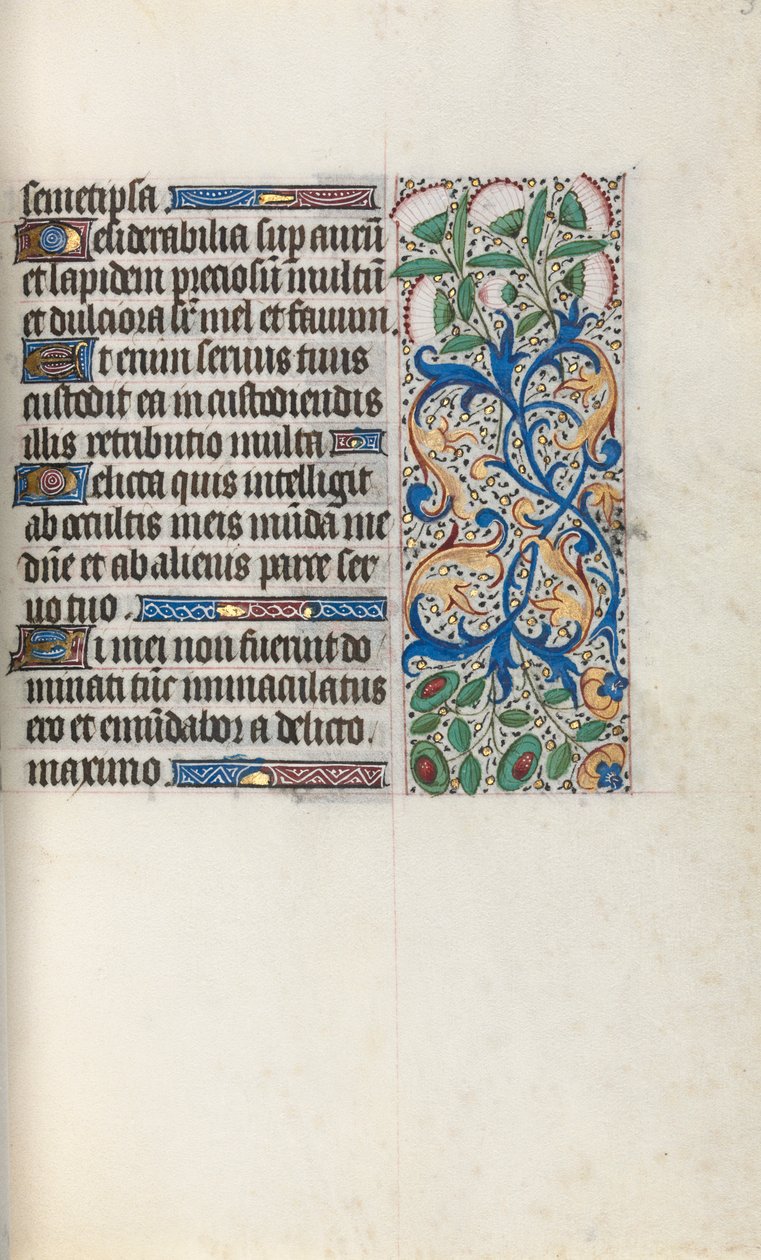 semetipsa
Desiderabilia sup aurū
et lapidem preciosū multū
et dulciora sr mel et fauum.
Et enim seruus tuus
custodit ea in custodiendis
illis retributio multa
Delicta quis intelligit
ab occultis meis mūda me
dn̄e et ab alienis parce ser
uo tuo.
Si mei non fuerint do
minati tūc immaculatus
ero et emūdabor a delicto
maximo.